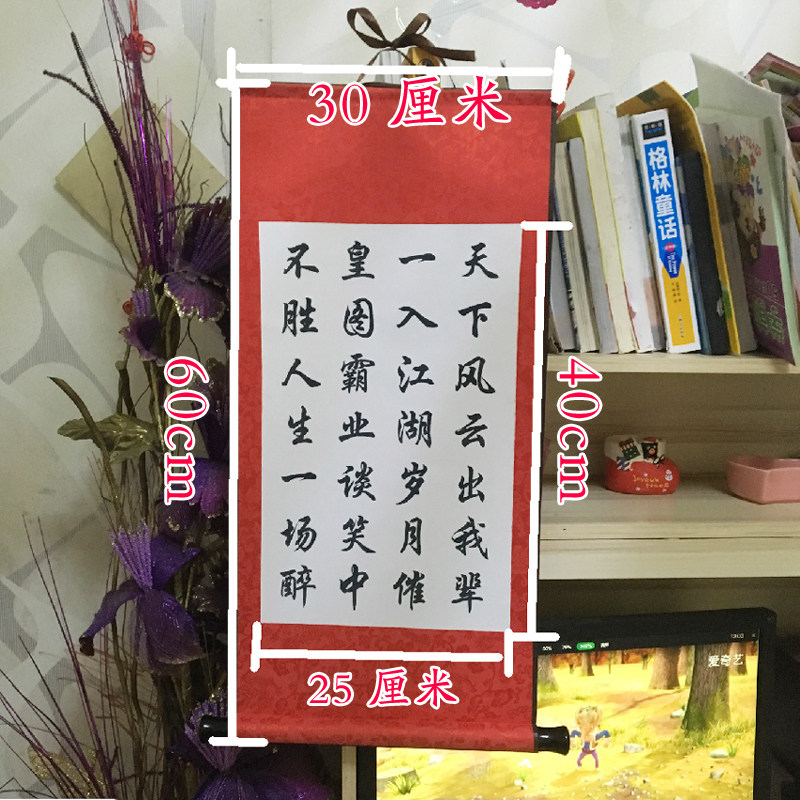 30 厘米
天下风云出我辈
一入江湖岁月催
皇图霸业谈笑中
不胜人生一场醉
60cm
40cm
25 厘米
格林童话
爱奇艺